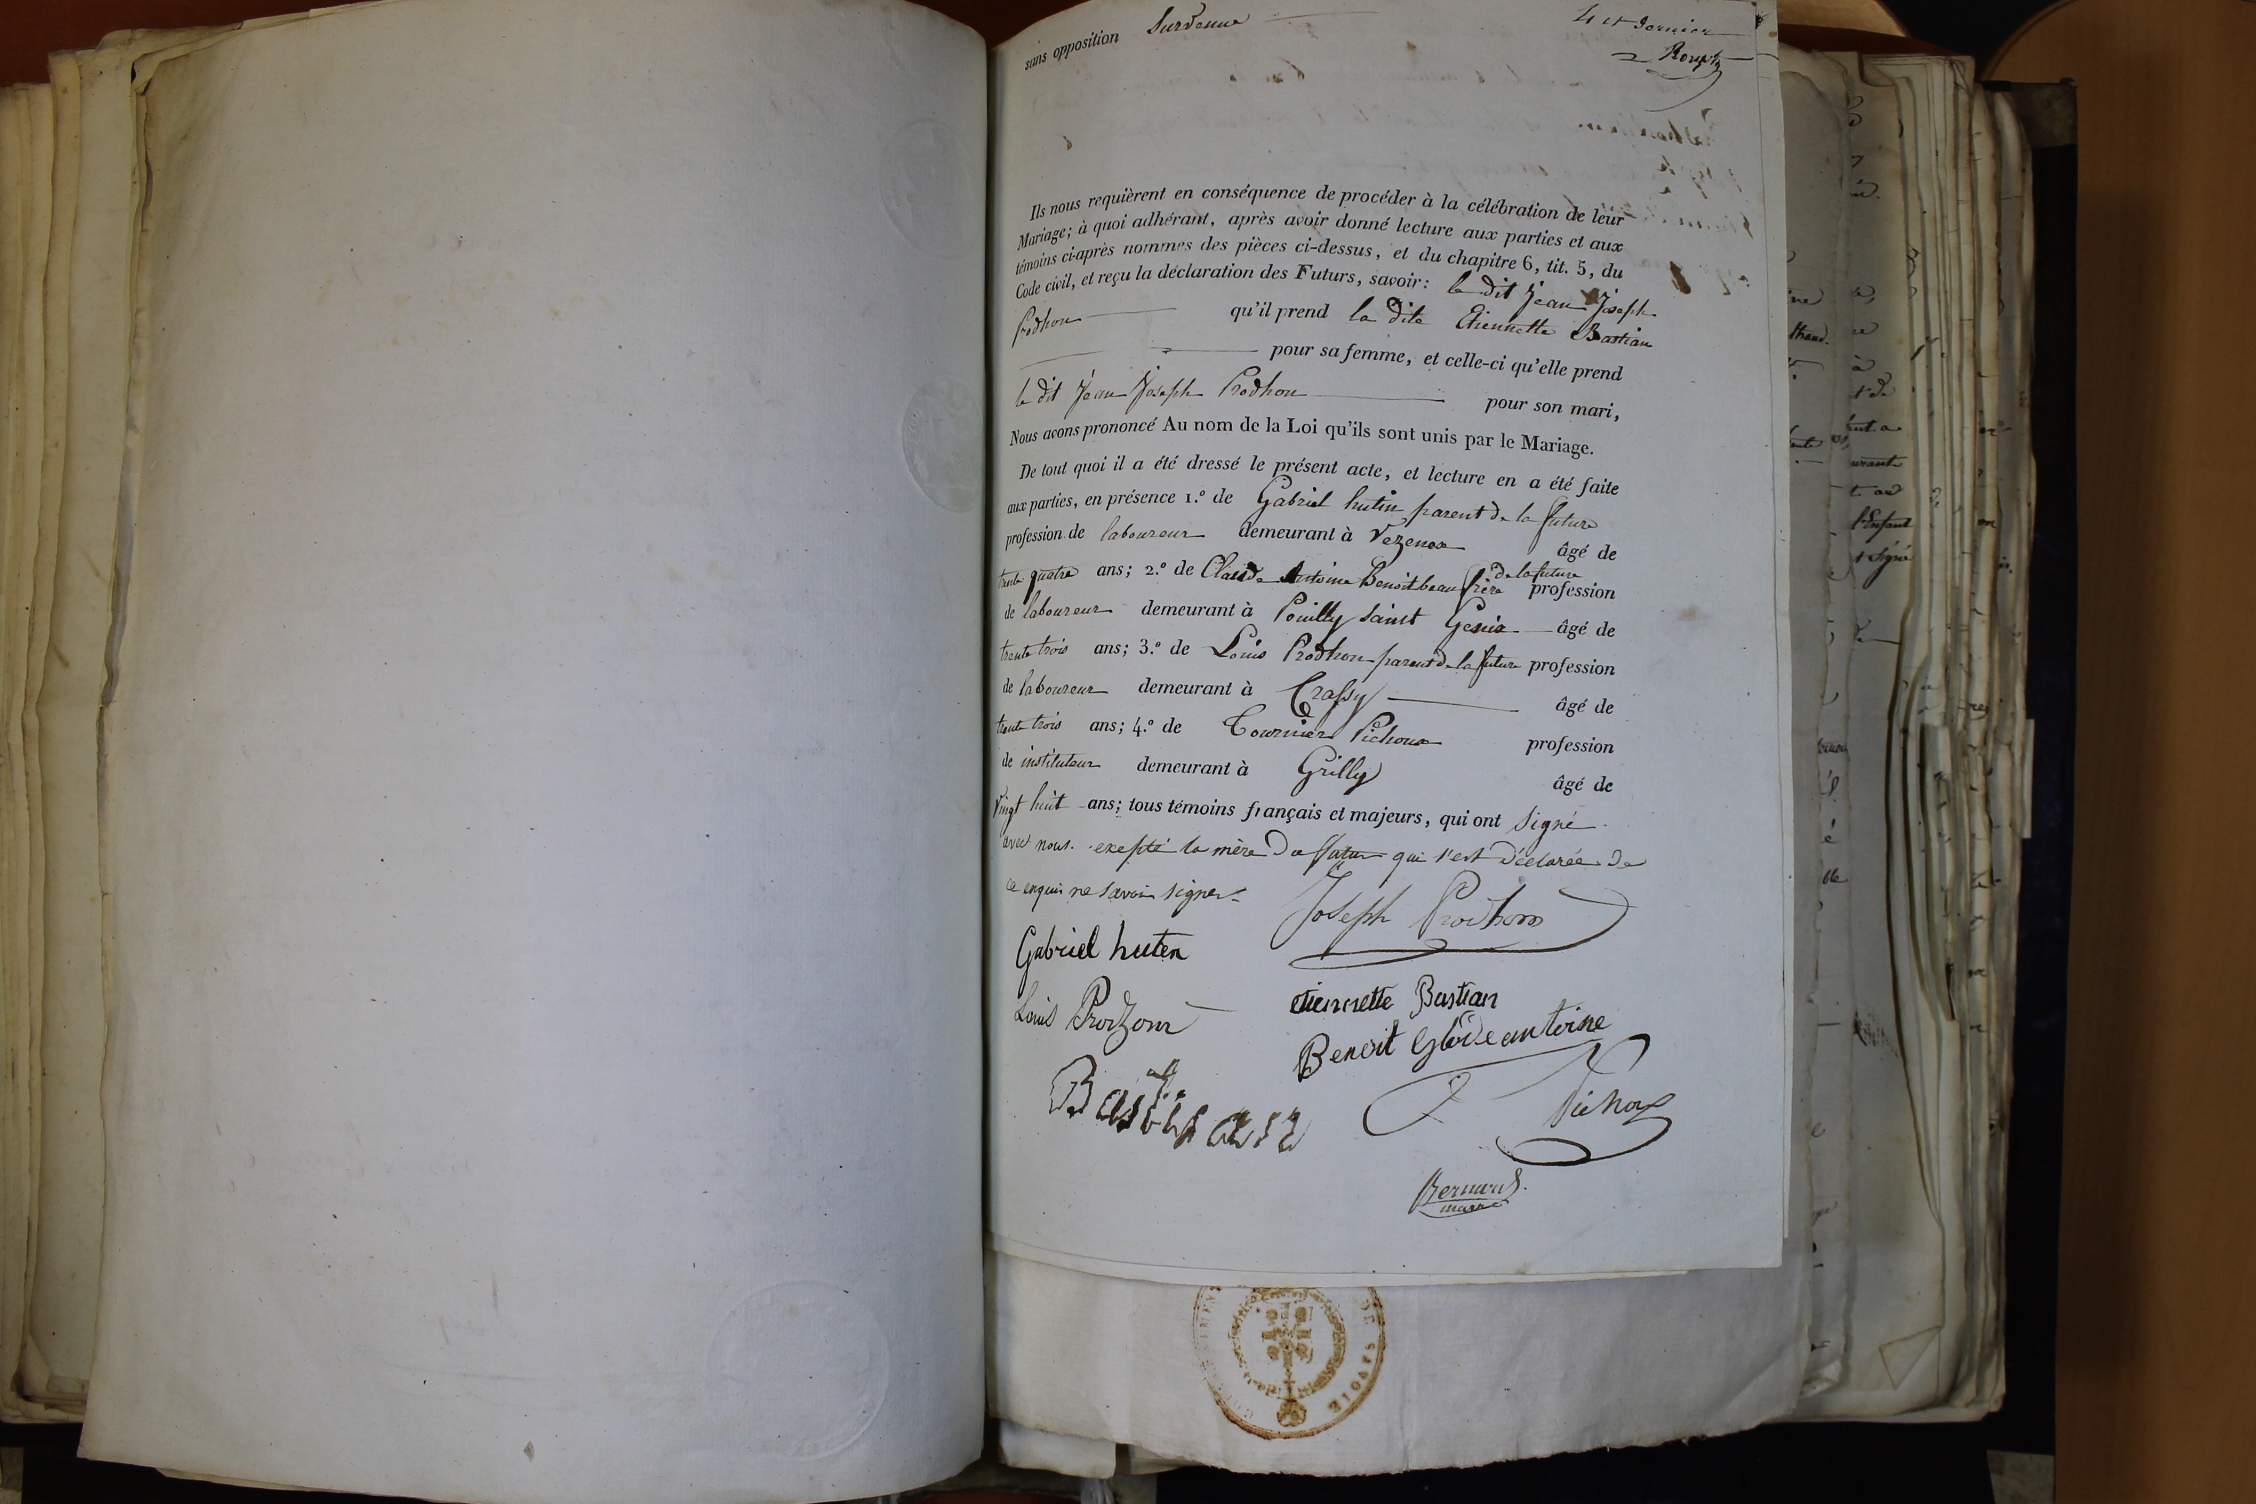 4 et dernier
Roup
sans opposition survenue
Ils nous requièrent en conséquence de procéder à la célébration de leur
Mariage; à quoi adhérant, après avoir donné lecture aux parties et aux
témoins ci-après nommés des pièces ci-dessus, et du chapitre 6, tit. 5, du
Code civil, et reçu la déclaration des Futurs, savoir: le dit Jean Joseph
Prodhon qu'il prend la dite Etiennette Bastian
pour sa femme, et celle-ci qu'elle prend
le dit Jean Joseph Prodhon pour son mari,
Nous avons prononcé Au nom de la Loi qu'ils sont unis par le Mariage.
De tout quoi il a été dressé le présent acte, et lecture en a été faite
aux parties, en présence 1.º de Gabriel hutin parent de la future
profession de laboureur demeurant à Vezenex âgé de
trente quatre ans; 2.º de Claude Antoine Benoit beau frère de la future profession
de laboureur demeurant à Pouilly saint Genix âgé de
trente trois ans; 3.º de Louis Prodhon parent de la future profession
de laboureur demeurant à Crassy âgé de
trente trois ans; 4.º de Tournier Pichoux profession
de instituteur demeurant à Grilly âgé de
vingt huit ans; tous témoins français et majeurs, qui ont signé
avec nous. exepté la mère du futur qui s'est déclarée de
ce enquis ne savoir signer
Joseph Prodhom
Gabriel huten
etiennette Bastian
Louis Prodzom
Benoit Glode antoine
Bastian
Pichoux
Bernard
maire
DE SAVOIE